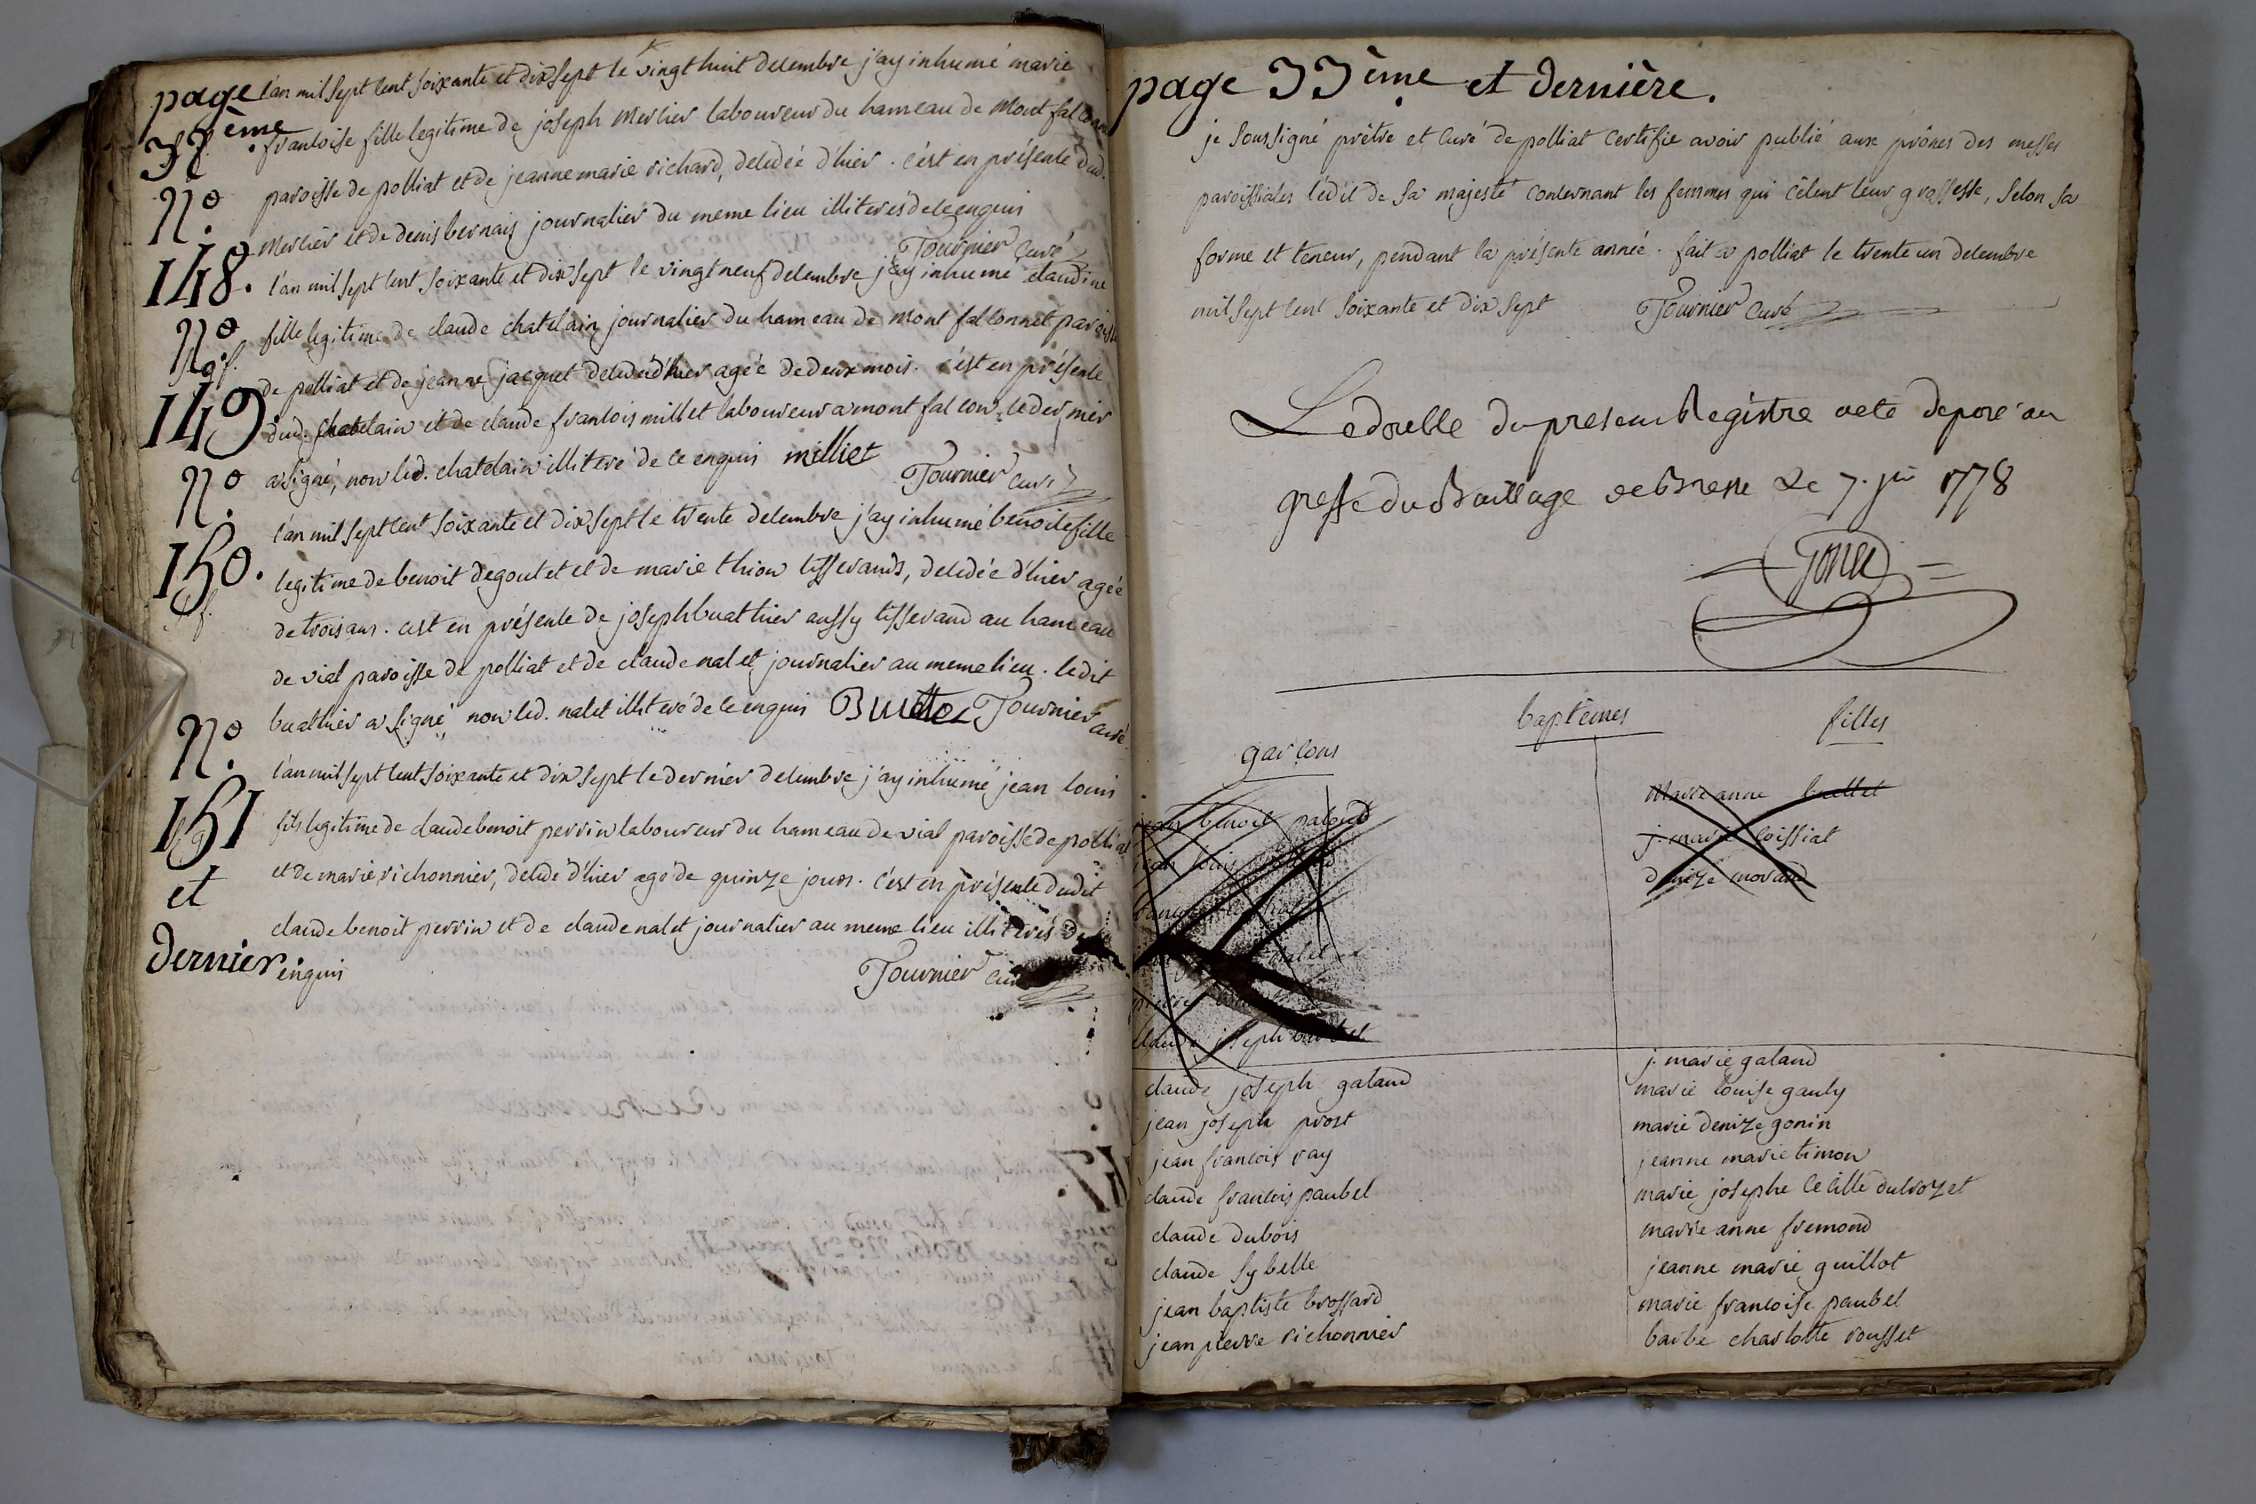 page 32ème
l'an mil sept cent soixante et dix sept le vingt huit decembre j'ay inhumé marie
francoise fille legitime de joseph Merlier laboureur du hameau de Mont falconnet
paroisse de polliat et de jeanne marie richard, decedée d'hier. c'est en présence dud.
Merlier et de denis bernais journalier du meme lieu illiterés de ce enquis
Tournier curé
N.o 148.
l'an mil sept cent soixante et dix sept le vingt neuf decembre j'ay inhumé claudine
fille legitime de claude chatelain journalier du hameau de Mont falconnet paroisse
de polliat et de jeanne jacquet decedée d'hier agée de deux mois. c'est en présence
dud. chatelain et de claude francois millet laboureur a mont falcon. ce dernier
a signé, non led. chatelain illiteré de ce enquis milliet
Tournier curé
N.o 149
N.o 150.
l'an mil sept cent soixante et dix sept le trente decembre j'ay inhumé benoite fille
legitime de benoit degoutet et de marie thion tisserands, decedée d'hier agée
de trois ans. c'est en présence de joseph buathier aussy tisserand au hameau
de vial paroisse de polliat et de claude nalet journalier au meme lieu. ledit
buathier a signé non led. nalet illiteré de ce enquis Tournier curé
N.o 151 et dernier
l'an mil sept cent soixante et dix sept le dernier decembre j'ay inhumé jean louis
fils legitime de claude benoit perrin laboureur du hameau de vial paroisse de polliat
et de marie richonnier, decedé d'hier agé de quinze jours. c'est en présence dudit
claude benoit perrin et de claude nalet journalier au meme lieu illiterés de ce
enquis
Tournier curé
page 33ème et dernière.
je soussigné prêtre et curé de polliat certifie avoir publié aux prônes des messes
paroissiales l'édit de sa majesté concernant les femmes qui cèlent leur grossesse, selon sa
forme et teneur, pendant la présente année. fait a polliat le trente un decembre
mil sept cent soixante et dix sept Tournier curé
Le double du present Registre a ete deposé au
greffe du Bailliage de Bresse Le 7. 1778
baptêmes
garcons
filles
jean benoit paloud
jean louis
claude joseph
Marie anne buellet
j. marie loissiat
denize morand
claude joseph galand
jean joseph prost
jean francois ray
claude francois paubel
claude dubois
claude sybelle
jean baptiste brossard
jean pierre richonnier
j. marie galand
marie louise gauly
marie denize gonin
jeanne marie timon
marie josephe cecille ducrozet
marie anne fremond
jeanne marie guillot
marie francoise paubel
barbe charlotte rousset